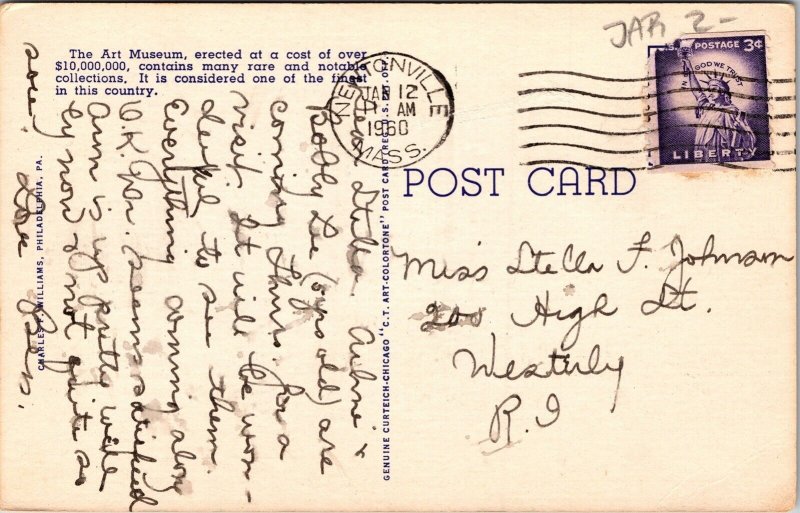 JAR 2-
The Art Museum, erected at a cost of over
$10,000,000, contains many rare and notable
collections. It is considered one of the finest
in this country.
NEWTONVILLE
JAN 12
AM
1960
MASS.
U.S. POSTAGE 3¢
IN GOD WE TRUST
LIBERTY
POST CARD
Miss Stella F. Johnson
200 High St.
Westerly
R.I
GENUINE CURTEICH-CHICAGO "C.T. ART-COLORTONE" POST CARD (REG. U.S. PAT. OFF.)
CHARLES WILLIAMS, PHILADELPHIA, PA.
Dear Stella. &
Bobby Lee (6 yrs old) are
coming Thurs. for a
visit. It will be won-
derful to see them.
Everything coming along
O.K. seems satisfied
Ann is up pretty well
by now & not quite so
sore.
Love